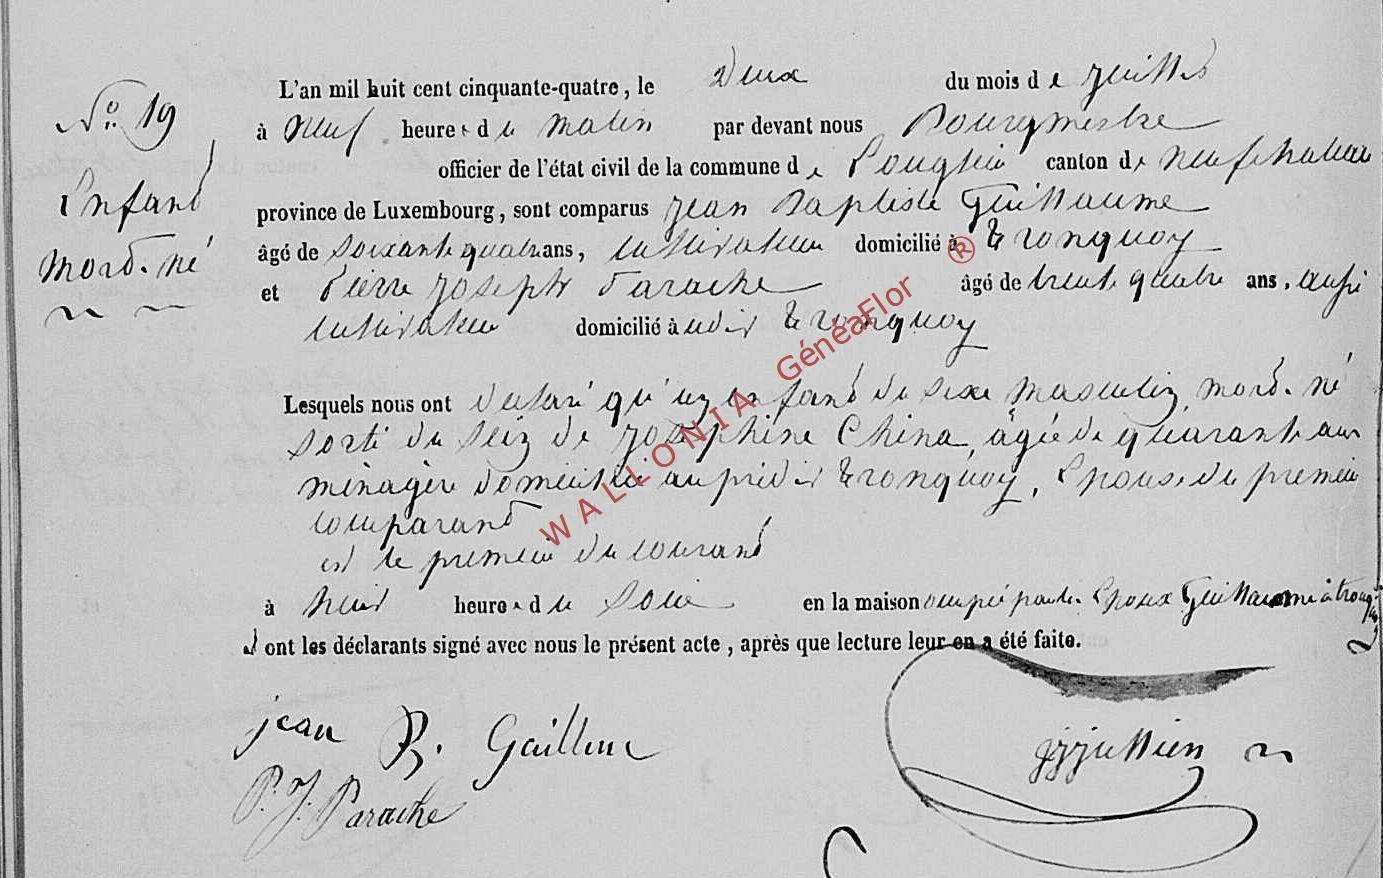 No. 19
Enfant
mort-né
L'an mil huit cent cinquante-quatre, le deux du mois de juillet
à neuf heures du matin par devant nous Bourgmestre
officier de l'état civil de la commune de Longlier canton de Neufchateau
province de Luxembourg, sont comparus jean Baptiste Guillaume
âgé de soixante quatre ans, cultivateur domicilié à Tronquoy
et Pierre joseph Parache âgé de trente quatre ans, aussi
cultivateur domicilié à udit Tronquoy
Lesquels nous ont déclaré qu'un enfant du sexe masculin, mort-né
sorti du sein de joséphine China âgée de quarante ans
ménagère domiciliée au prédit Tronquoy, Epouse du premier
comparant
est le premier du courant
à huit heures du soir en la maison occupée par les Epoux Guillaume à tronquoy
et ont les déclarants signé avec nous le présent acte, après que lecture leur en a été faite.
jean B. Guillaume
P. J. Parache
WALLONIA GénéaFlor ®